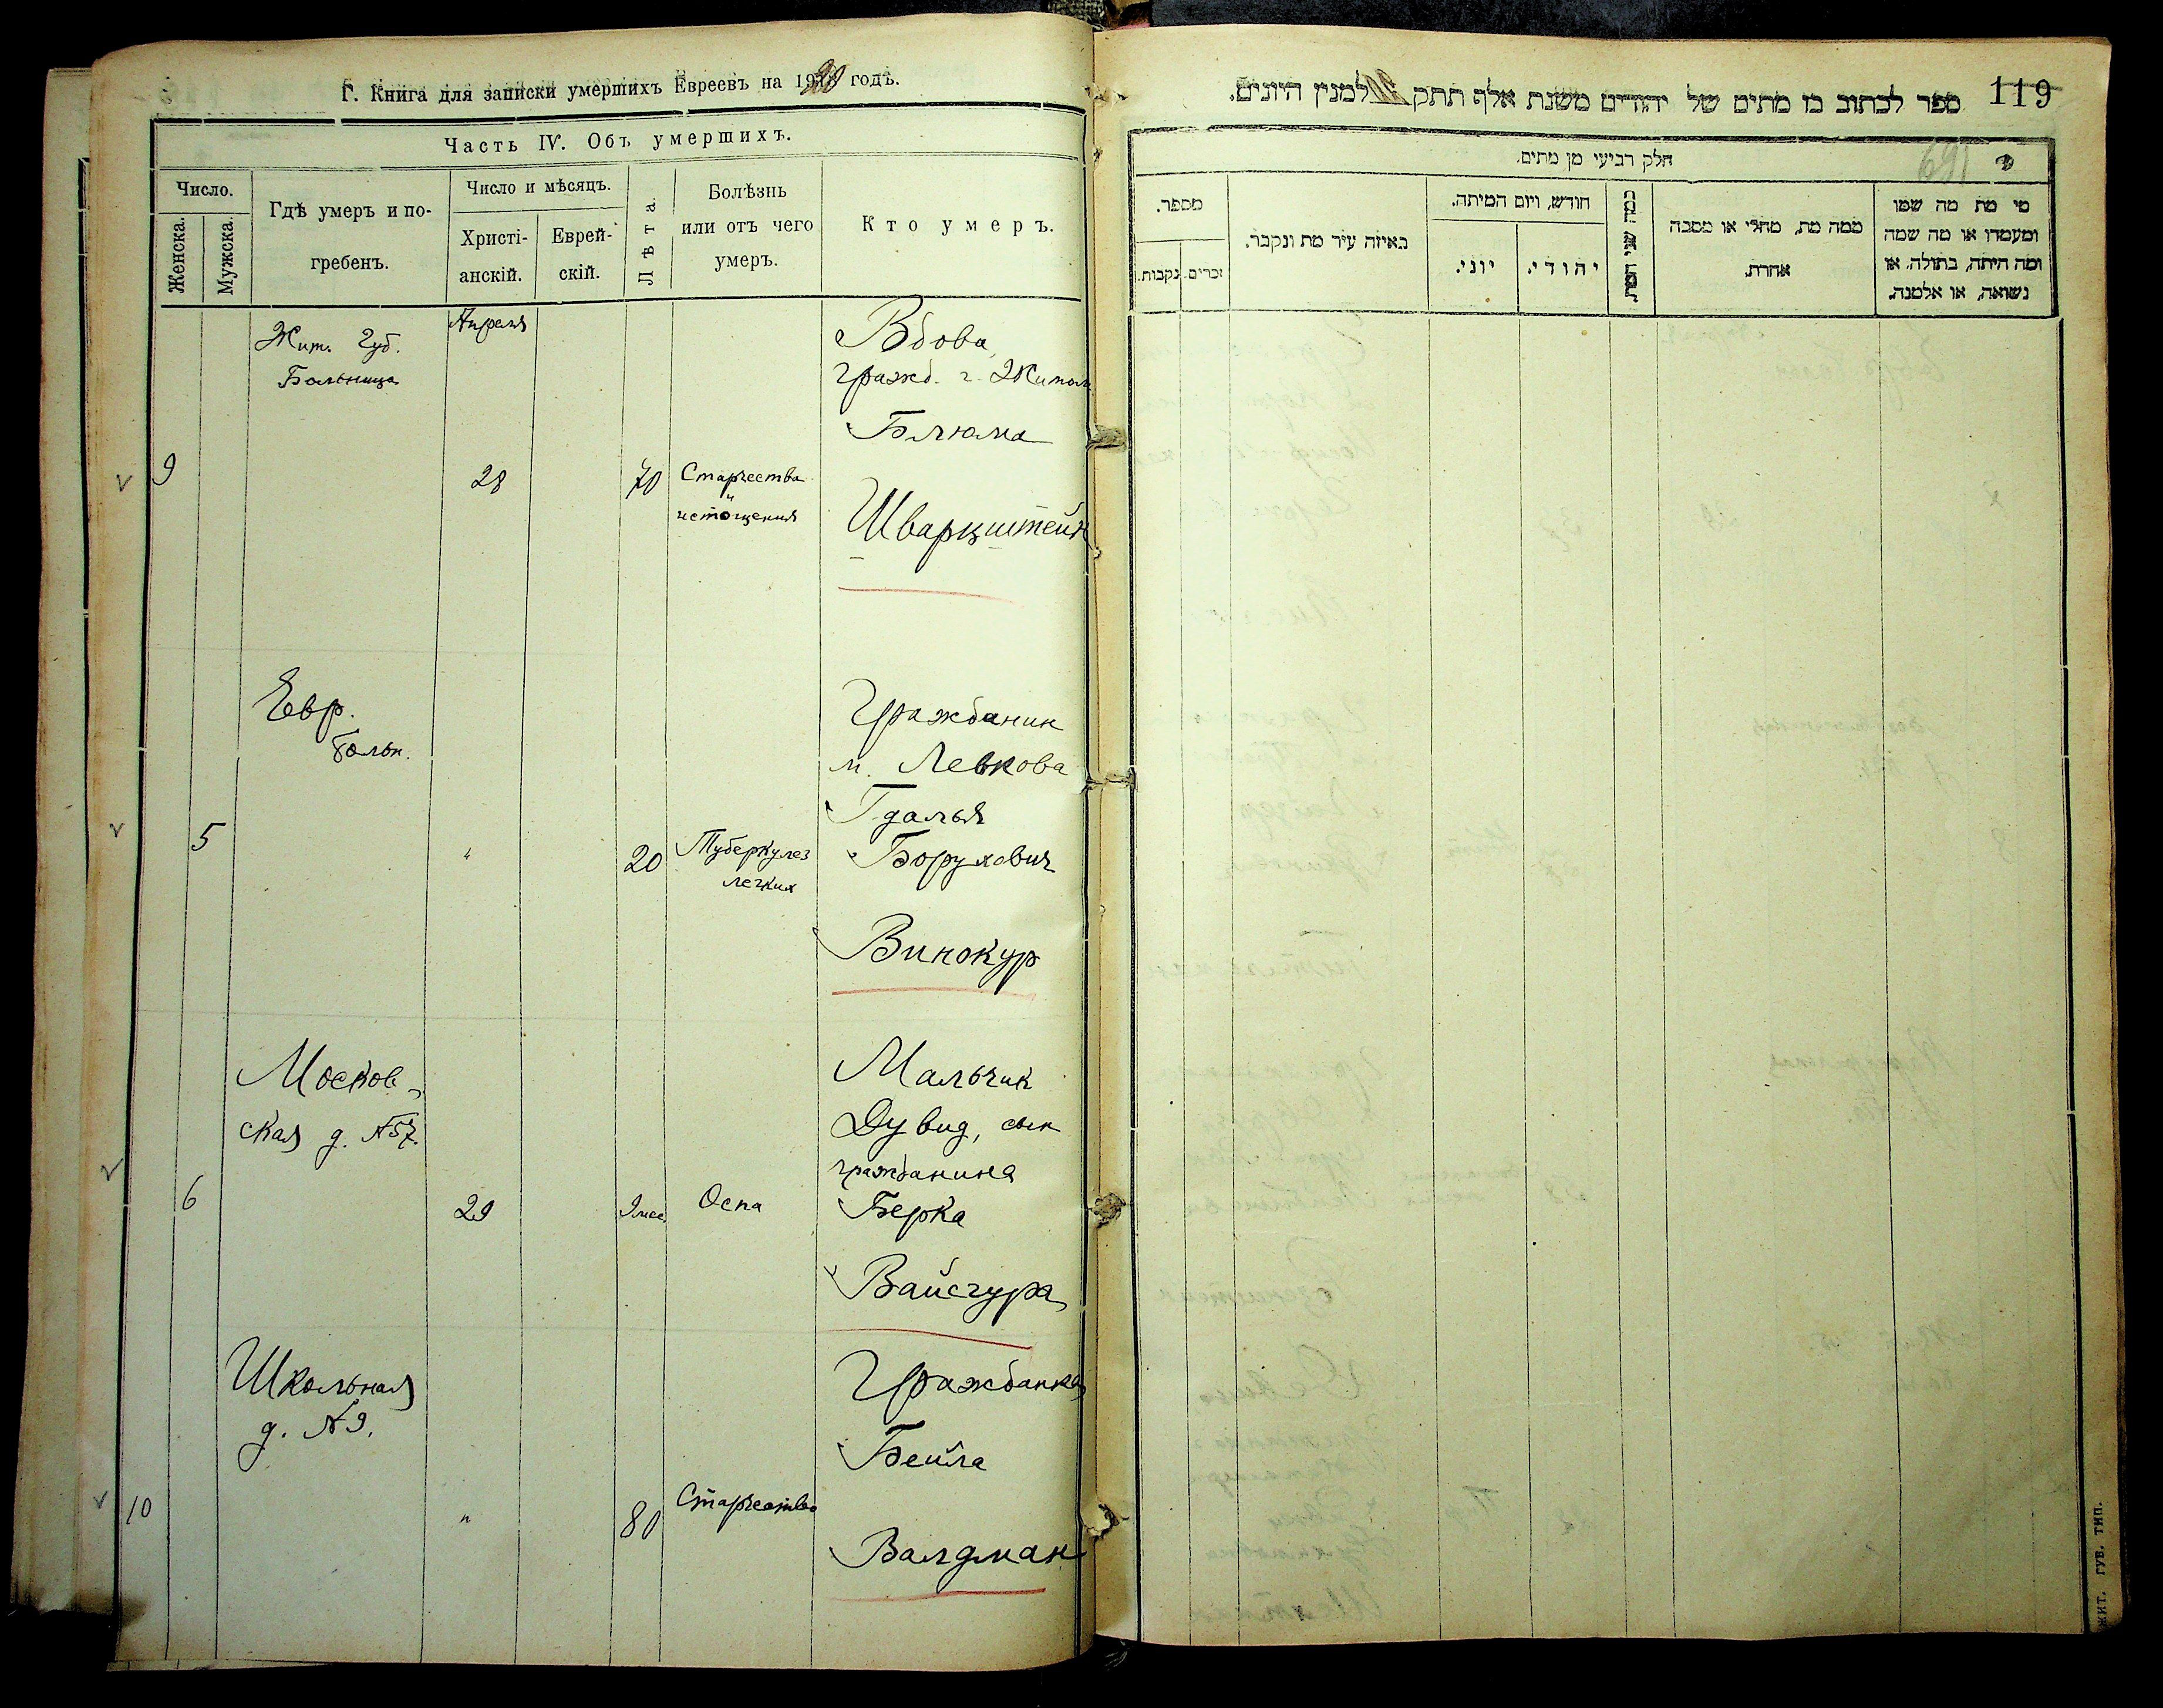 Г. Книга для записки умершихъ Евреевъ на 1920 годъ.
Часть IV. Объ умершихъ.
Число.
Женска.
Мужска.
Гдѣ умеръ и по-
гребенъ.
Число и мѣсяцъ.
Христі-
анскій.
Еврей-
скій.
Лѣта.
Болѣзнь
или отъ чего
умеръ.
Кто умеръ.
Жит. Губ.
Больница
Апреля
Вдова
гражд. г. Житом
Блюма
9
28
70
Старчества
и
истощения
Шварцштейн
Евр.
больн.
Гражданин
м. Левкова
Гдалья
5
"
20
Туберкулез
легких
Борухович
Винокур
Москов-
ская д. №57.
Мальчик
Дувид, сын
гражданина
6
29
9 мес
Оспа
Берка
Вайсгура
Школьная
д. №9.
Гражданка
Бейла
10
"
80
Старчество
Валдман
119
ספר לכתוב בו מתים של יהודים משנת אלף תתק למנין היונים.
חלק רביעי מן מתים.
169
מי מת מה שמו
ומעמדו או מה שמה
ומה היתה, בתולה, או
נשואה, או אלמנה.
ממה מת, מחלי או מסבה
אחרת.
כמה שני המת.
חודש, ויום המיתה.
יהודי.
יוני.
באיזה עיר מת ונקבר.
מספר.
זכרים.
נקבות.
ЖИТ. ГУБ. ТИП.